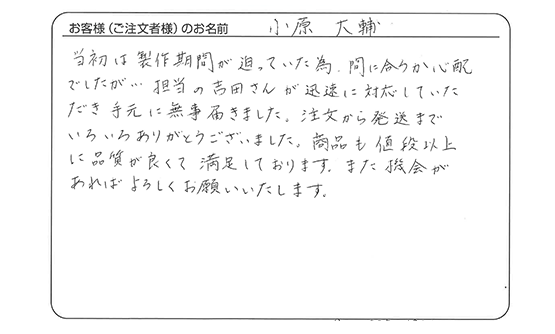 お客様（ご注文者様）のお名前 小原 大輔
当初は製作期間が迫っていた為、間に合うか心配
でしたが… 担当の吉田さんが迅速に対応していた
だき手元に無事届きました。注文から発送まで
いろいろありがとうございました。商品も値段以上
に品質が良くて満足しております。また機会が
あればよろしくお願いいたします。